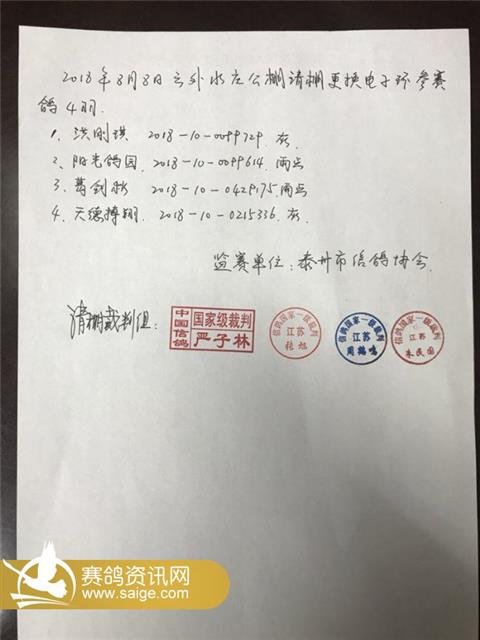 2018年8月8日云外水庄公棚清棚更换电子环参赛
鸽4羽.
1. 洪刚琪 2018-10-0099729.灰.
2. 阳光鸽园. 2018-10-0099614.雨点
3. 葛剑 2018-10-0429175.雨点
4. 天德搏翔. 2018-10-0215336.灰.
监赛单位:泰州市信鸽协会.
清棚裁判组:
中国信鸽
国家级裁判
严子林
信鸽国家一级裁判
江苏
张旭
信鸽国家一级裁判
江苏
周鹤鸣
信鸽国家一级裁判
江苏
朱民国
赛鸽资讯网
www.saige.com